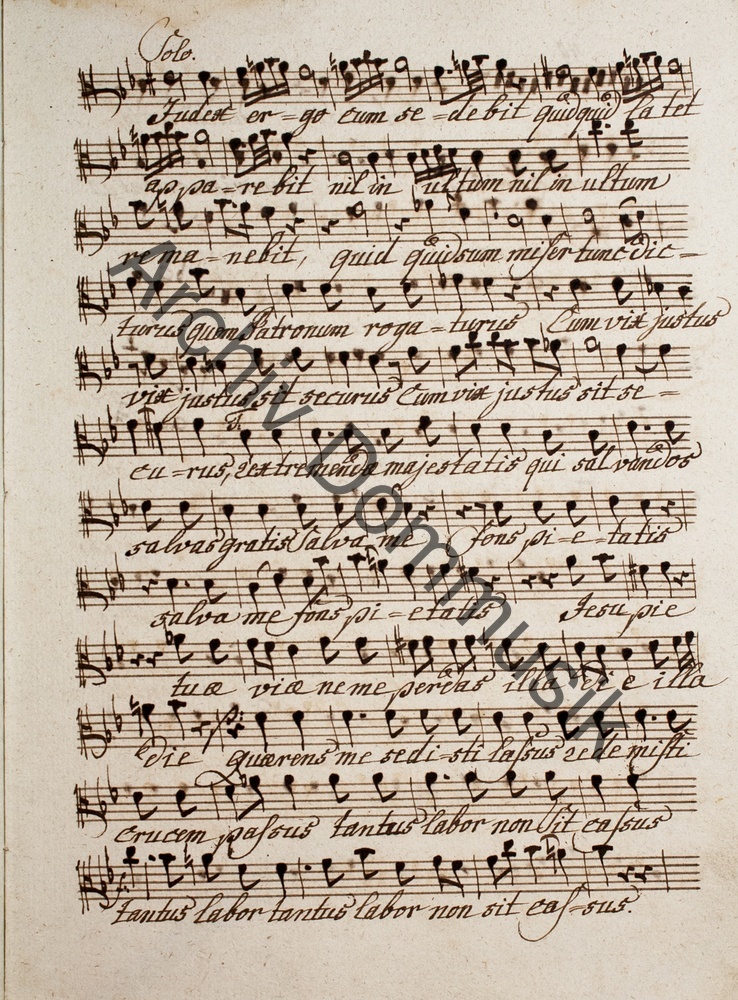 Solo.
Judex er-=go cum se-=debit quidquid latet
appa-=rebit nil in ultum nil in ultum
rema-=nebit, quid quid sum miser tunc dic-
turus quem Patronum roga-=turus Cum vix justus
vix justus sit securus Cum vix justus sit se-=
cu-=rus, rex tremenda majestatis qui salvandos
salvas gratis Salva me fons pi-e-=tatis
salva me fons pi-=etatis Jesu pie
tuæ viæ ne me perdas illa die illa
Die p: Quærens me sedi-sti lassus redemisti
crucem passus tantus labor non Sit cassus
tantus labor tantus labor non sit cas-=sus.
Archiv Dommusik